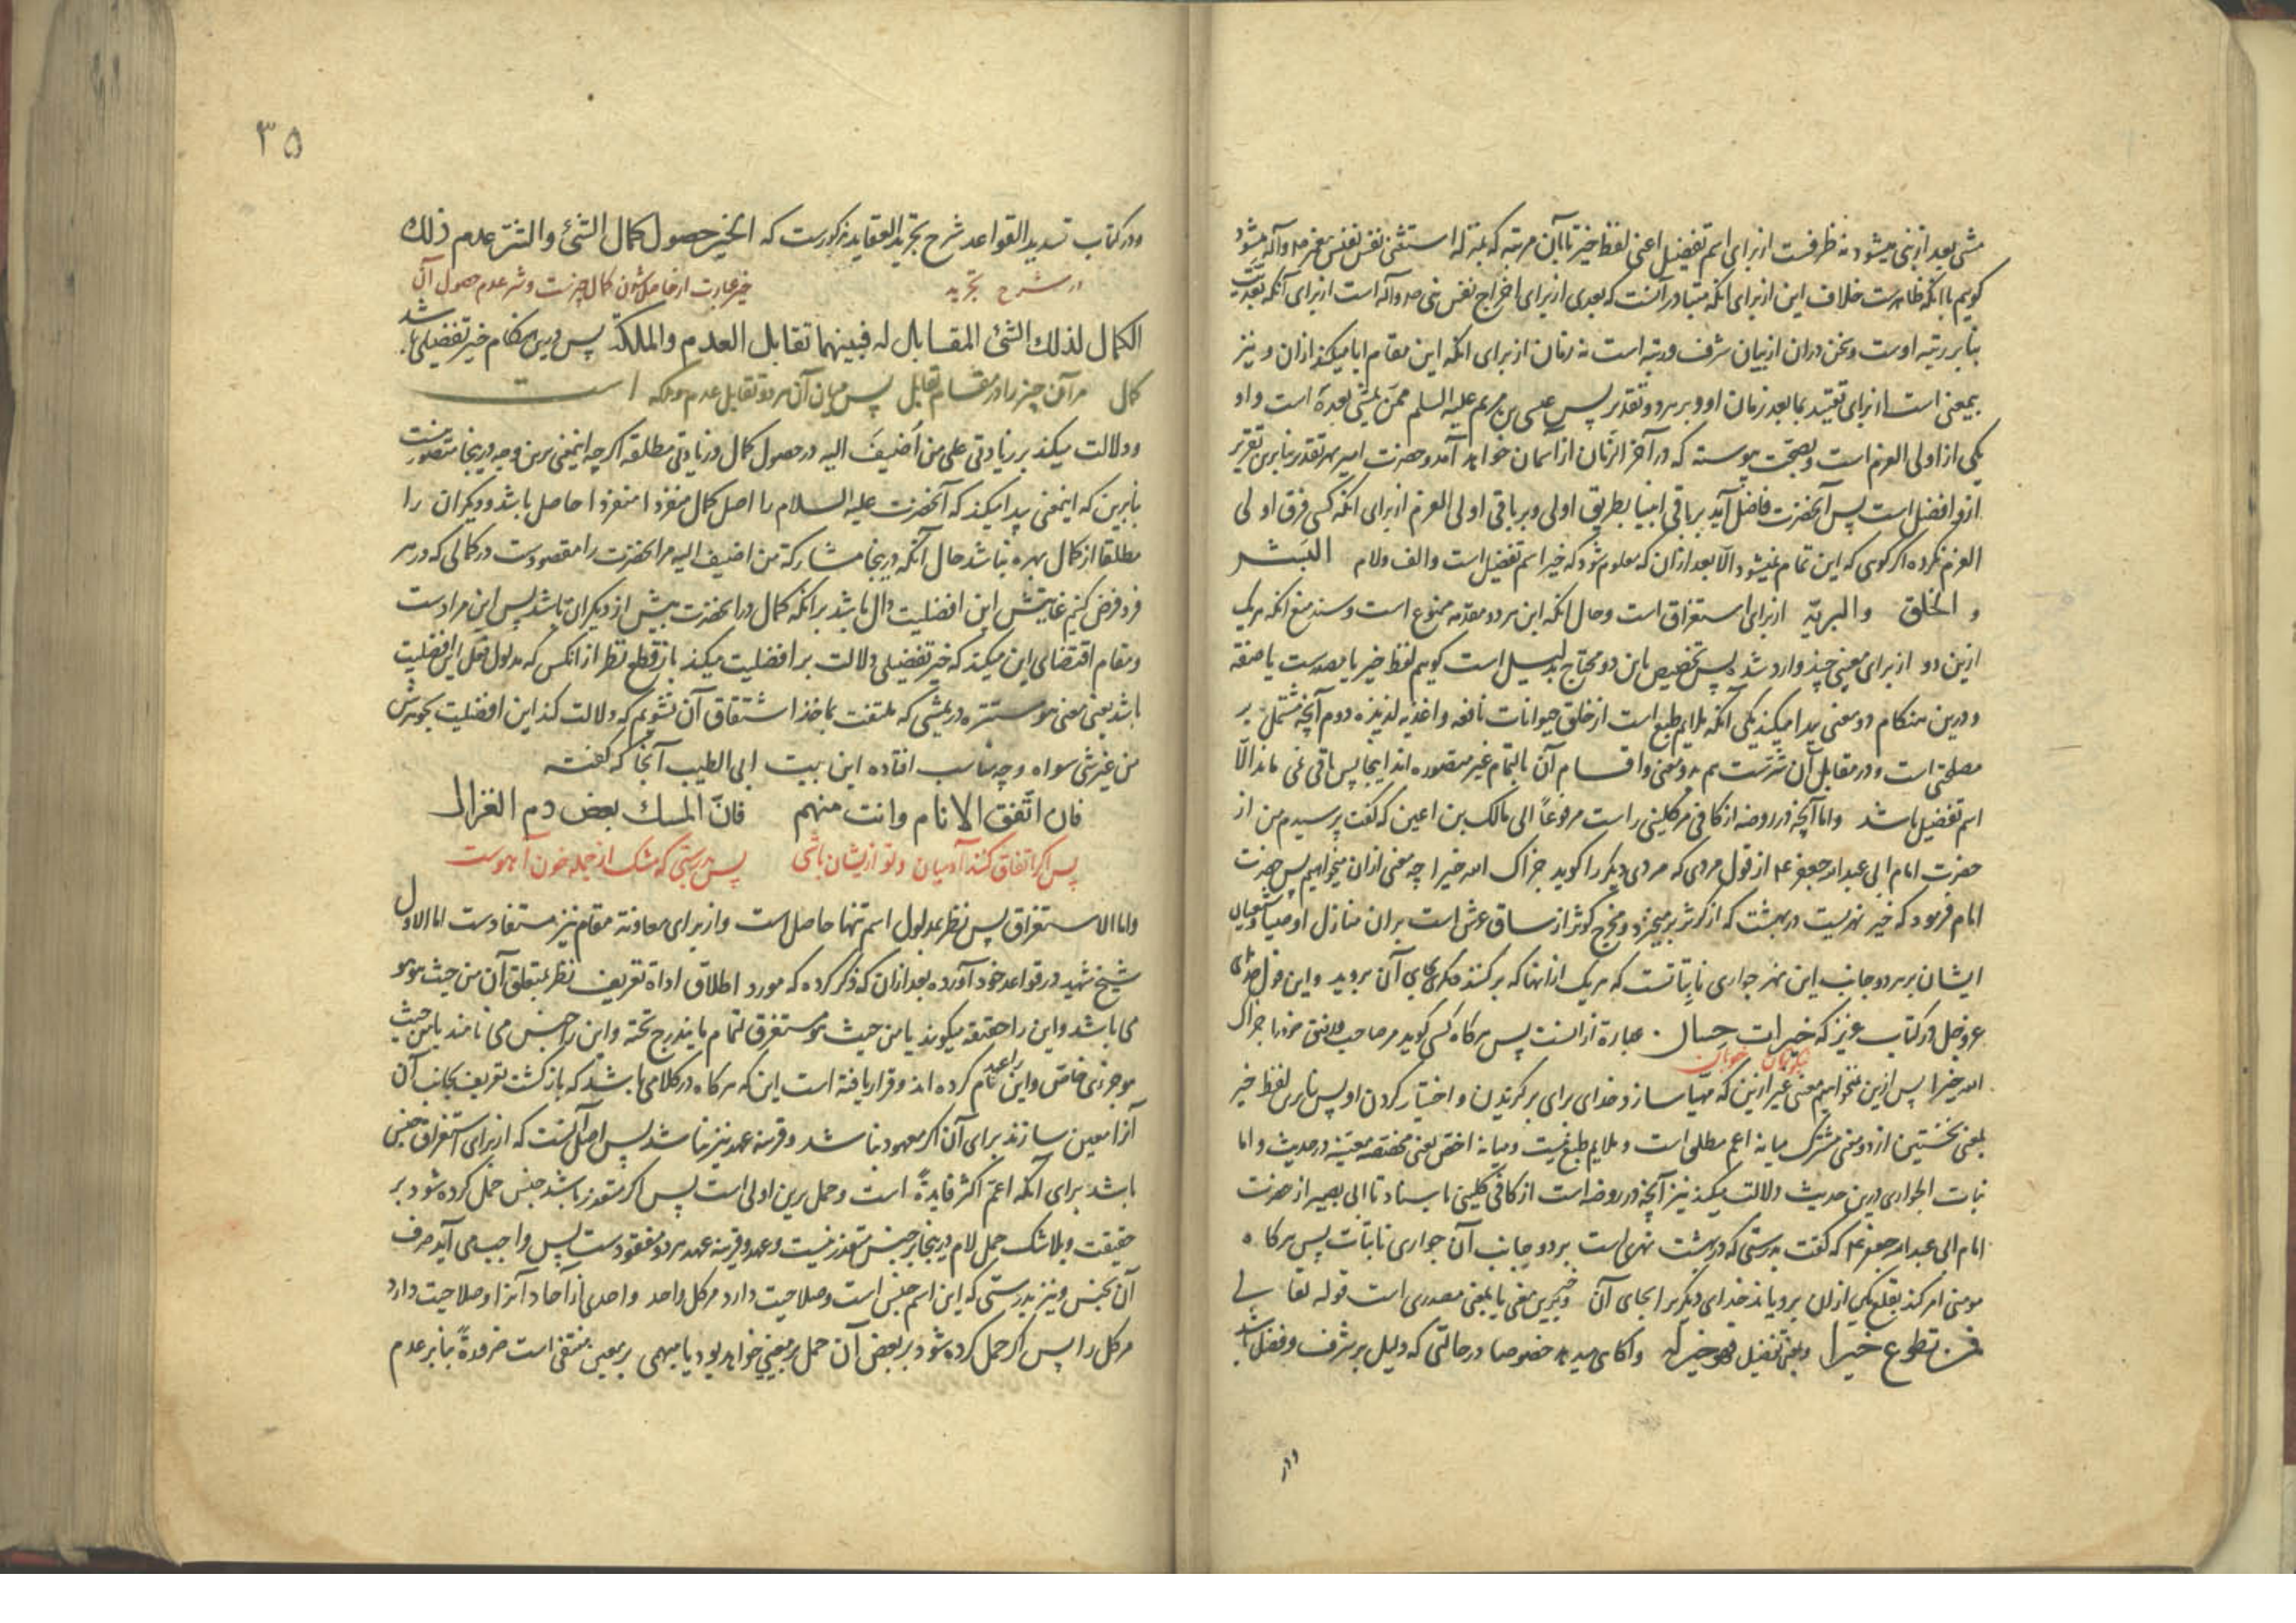 مشی بعد از نبی میشود نه ظرفست از برای اسم تفضیل اعنی لفظ خیر تا بآن مرتبه که بمنزله استثنی نفس نفیس پیغمبر ص و آله میشود
گویم با آنکه ظاهرست خلاف این از برای آنکه متبادر آنست که بعدی از برای اخراج نفس نبی ص و آله است از برای آنکه بعدیت
بنا بر رتبه اوست و سخن در آن از بیان شرف و رتبه است نه زمان از برای انکه این مقام ابا میکند از آن و نیز
بیمعنی است از برای تقیید بما بعد زمان او و بر هر دو تقدیر پس عیسی بن مریم علیه السلم ممن یمشی بعده است و او
یکی از اولی العزم است و بصحت پیوسته که در آخر الزمان از آسمان خواهد آمد و حضرت امیر بهر تقدیر بنابرین تقریر
ازو افضل است پس آنحضرت فاضل آید بر باقی انبیا بطریق اولی و بر باقی اولی العزم از برای انکه کسی فرق اولی
العزم نکرده اگر گوئی که این تمام نمیشود الا بعد از آن که معلوم شود که خیر اسم تفضیل است و الف و لام البشر
و الخلق و البریّة از برای استغراق است و حال انکه این هر دو مقدمه ممنوع است و سند منع انکه هر یک
ازین دو از برای معنی چند وارد شده پس تخصیص باین دو محتاج بدلیل است گویم لفظ خیر یا مصدرست یا صفة
و درین هنگام دو معنی پیدا میکند یکی آنکه ملایم طبع است از خلق حیوانات نافعه و اغذیه لذیذه دوم آنچه مشتمل بر
مصلحتی است و در مقابل آن شرّست هم بدو معنی و اقسام آن بالتمام غیر متصوره اند اینجا پس باقی نمی ماند الّا
اسم تفضیل باشد و اما آنچه در روضه از کافی مر کلینی راست مرفوعاً الی مالک بن اعین که گفت پرسیدم من از
حضرت امام ابی عبد الله جعفر ع از قول مردی که مردی دیگر را گوید جزاک الله خیرا چه معنی از آن میخواهیم پس حضرت
امام فرمود که خیر نهریست در بهشت که از کوثر برمیخیزد و مخرج کوثر از ساق عرش است بران منازل اوصیا و شیعیان
ایشان بر هر دو جانب این نهر جواری نابتاتست که هر یک از آنها که برکنند دیگری بجای آن بروید و این قول خدای
عز و جل در کتاب عزیز که خیرات حسان عبارة از آنست پس هرگاه کسی گوید مر صاحب خود را جزاک
نیکویان خوبان
الله خیرا پس ازین نمیخواهیم معنی غیر ازین که مهیّا سازد خدای برای برگزیدن و اختیار کردن او پس بنابرین لفظ خیر
بمعنی نخستین از دو معنی مشترک میانه اعم مطلق است و ملایم طبع نیست و میانه اخص یعنی مختصه معینه در حدیث و اما
نبات الجواری درین حدیث دلالت میکند نیز آنچه در روضه است از کافی کلینی باسناد تا ابی بصیر از حضرت
امام ابی عبد الله جعفر ع که گفت بدرستی که در بهشت نهری است بر دو جانب آن جواری نابتات پس هرگاه
مومنی امر کند بقلع یکی از ان برویاند خدای دیگر بر اینجای آن و خیر بدین معنی یا بمعنی مصدری است قوله تعالی
فمن تطوع خیرا و بمعنی تفضیل فهو خیر له و آگاهی میدهد خصوصا در حالتی که دلیل بر شرف و فضل باشد
٣٥
و در کتاب تسدید القواعد شرح تجرید العقاید مذکورست که الخیر حصول کمال الشئ والشر عدم ذلک
در شرح تجرید خیر عبارت از حاصل شدن کمال چیزیست و شر عدم حصول آن
الکمال لذلک الشئ المقابل له فبینهما تقابل العدم والملکة پس درین هنگام خیر تفضیلی باشد
کمال مر آن چیز را در مقام تقابل پس میان آن هر دو تقابل عدم و ملکه است
و دلالت میکند بر زیادتی علی من اُضیفَ الیه در حصول کمال و زیادتی مطلقه اگر چه اینمعنی برین وجه درینجا متصور نیست
بنابرین که اینمعنی پیدا میکند که آنحضرت علیه السلام را اصل کمال منفردا منفردا حاصل باشد و دیگران را
مطلقا از کمال بهره نباشد حال آنکه درینجا مشارکة من اضیف الیه مر انحضرت را مقصودست در کمالی که در هر
فرد فرض کنیم غایتش این افضلیت دال باشد بر آنکه کمال در انحضرت بیش از دیگران باشد پس این مرادست
و مقام اقتضای این میکند که خیر تفضیلی دلالت بر افضلیت میکند باز قطع نظر از انکس که مدلول فعل این افضلیت
باشد یعنی معنی هو مستتره در یمشی که ملتفت بماخذ اشتقاق آن نشویم که دلالت کند این افضلیت بجوهرش
من غیر شئ سواه و چه مناسب افتاده این بیت ابی الطیب آنجا که گفته
فان اتّفق الانام وانت منهم فانّ المسک بعض دم الغزال
پس اگر اتفاق کنند آدمیان و تو از ایشان باشی پس بدرستی که مشک از جمله خون آهوست
و اما الاستغراق پس نظر بمدلول اسم تنها حاصل است و از برای معاونة مقام نیز مستفادست اما الاول
شیخ شهید در قواعد خود آورده بعد از آن که ذکر کرده که مورد اطلاق اداة تعریف نظر بمتعلق آن من حیث هو هو
می باشد و این را حقیقة میگویند یا من حیث هو مستغرق لتمام ما یندرج تحته و این را جنس می نامند یا من حیث
هو جزئی خاص و این را عهد نام کرده اند و قرار یافته است این که هرگاه در کلامی باشد که بازگشت تعریف بجانب آن
آنرا معین سازند برای آن اگر معهود نباشد و قرینه عهد نیز نباشد پس اصل آنست که از برای استغراق جنسی
باشد برای آنکه اعم اکثر فایدةً است و حمل برین اولی است پس اگر متعذر باشد جنس حمل کرده شود بر
حقیقت و بلا شک حمل لام درینجا بر جنس متعذر نیست و عهد و قرینه عهد هر دو مفقودست پس واجب می آید صرف
آن بجنس و نیز بدرستی که این اسم جنس است و صلاحیت دارد مر کل واحد واحدی از آحاد آنرا و صلاحیت دارد
مر کل را پس اگر حمل کرده شود بر بعض آن حمل بر معینی خواهد بود یا مبهمی بر معین منتفی است ضرورةً بنا بر عدم